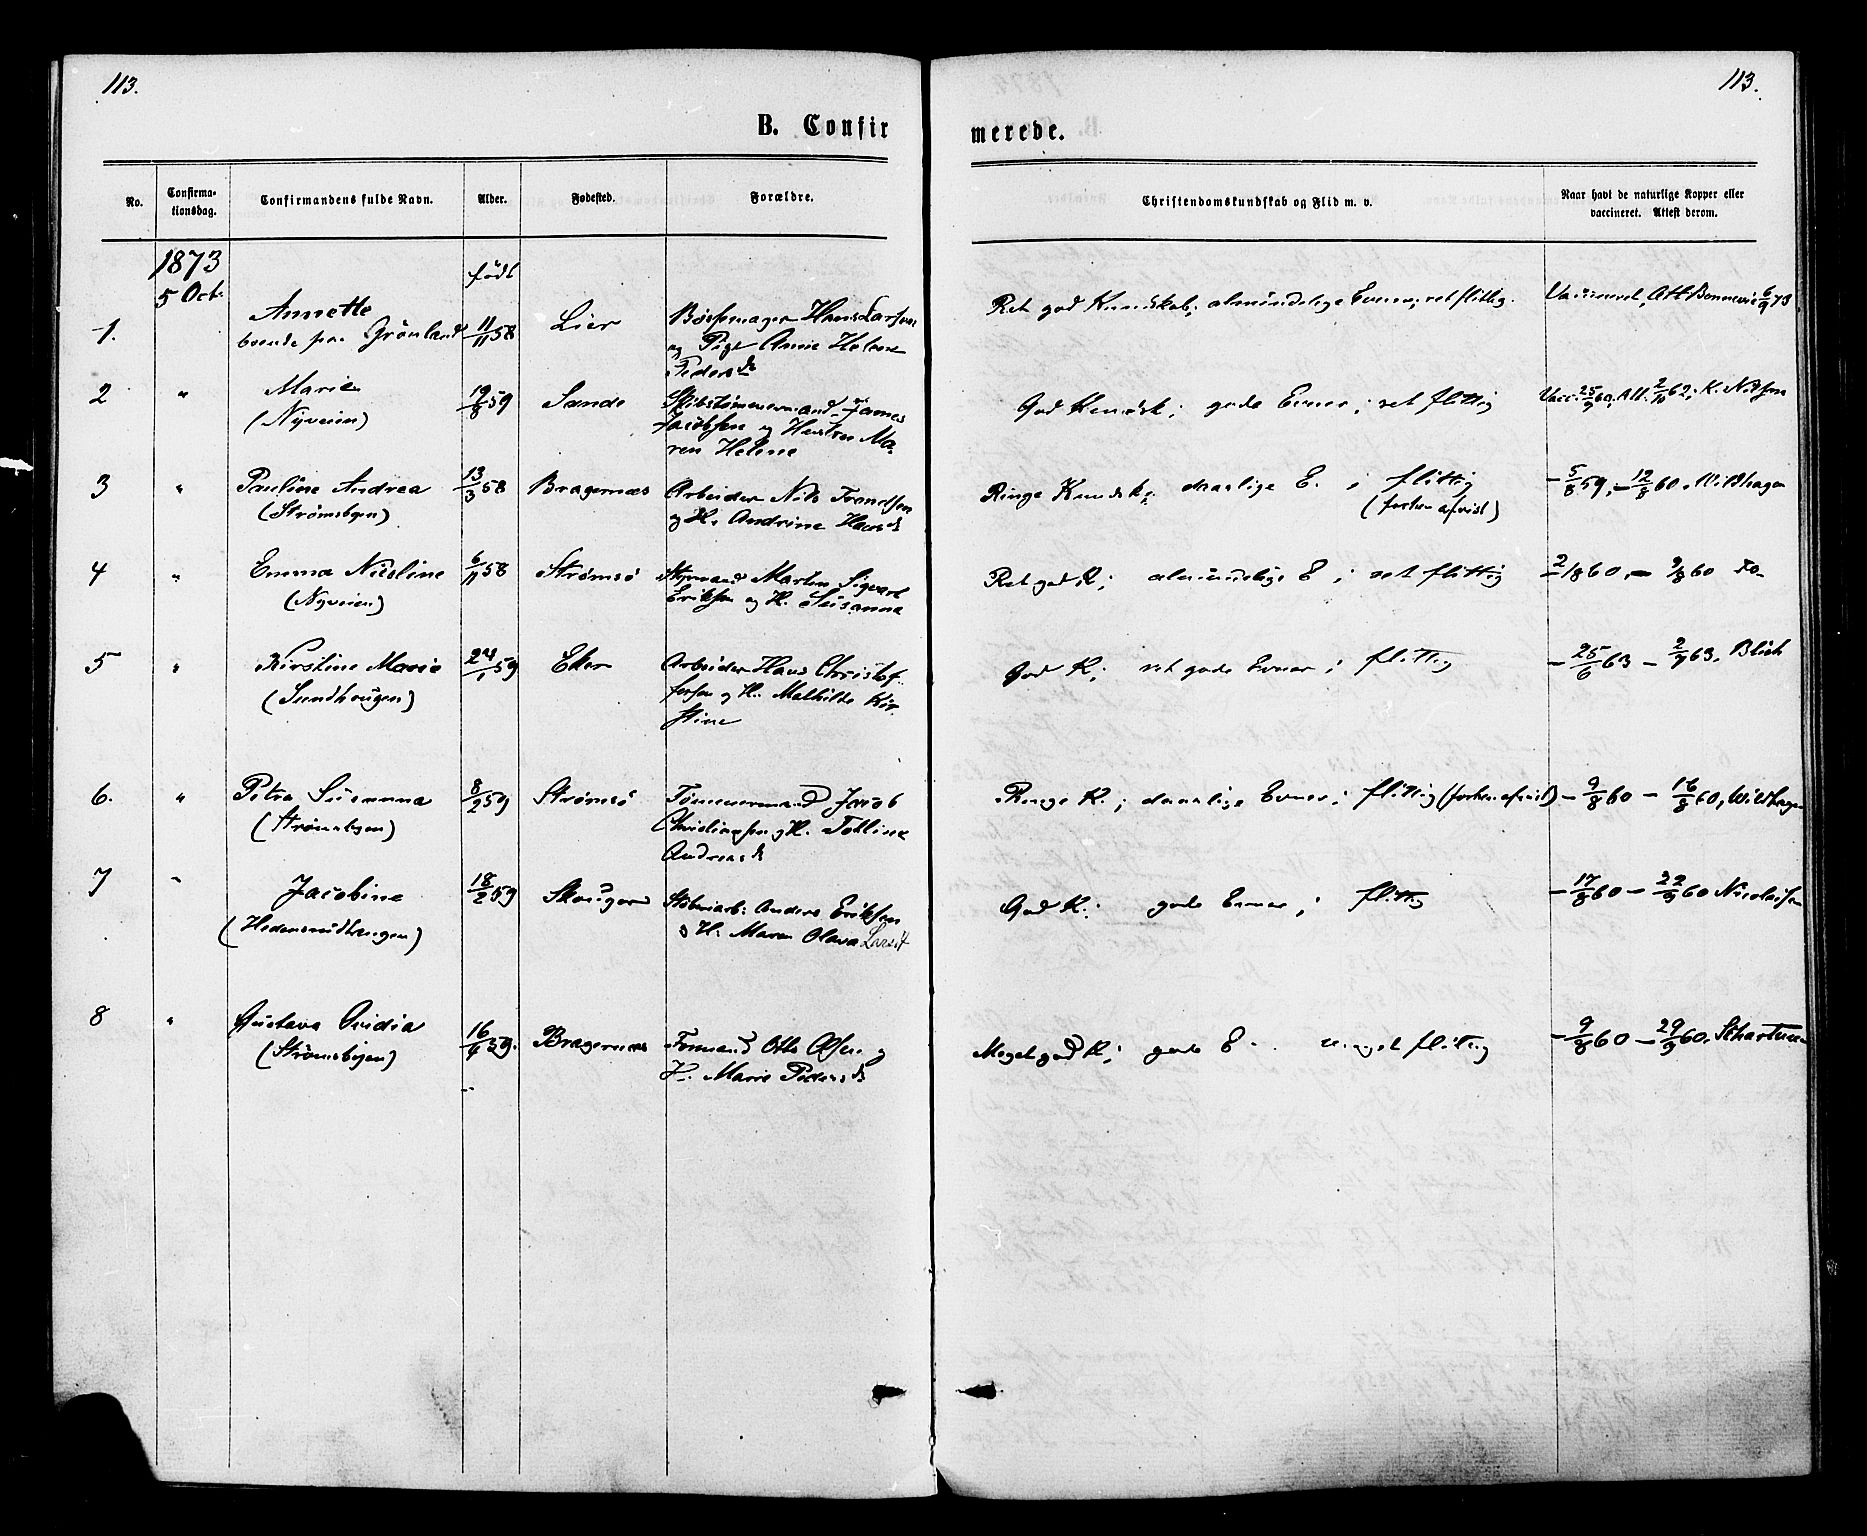 113.
113.
B. Confir
merede.
No.
Confirma-
tionsdag.
Confirmandens fulde Navn.
Alder.
Fødested.
Forældre.
Christendomskundskab og Flid m. v.
Naar havt de naturlige Kopper eller
vaccineret. Attest derom.
1873
5 Oct.
født
1.
Annette
boende paa Grönland
11/11 58
Lier
Børsemager Hans Larsen
og Pige Anne Helene
Pedersd
Ret god Kundskab; almindelige Evner; ret flittig.
Vaccineret, Att. Bonnevie 6/9 73
2
"
Marie
(Nyveien)
19/8 59
Sande
Skibstømmermand James
Jacobsen og Hustru Ma-
ren Helene
God Kundsk; gode Evner; ret flittig
Vacc. 25/9 60, Att. 2/10 62, K. Nilsen
3
"
Pauline Andrea
(Strømsbyen)
13/3 58
Bragernæs
Arbeider Nils Frandsen
og H. Andrine Hansd
Ringe Kundsk; daarlige E. ; flittig
(forhen afvist)
- 5/8 59, - 12/8 60, Wildhagen
4
"
Emma Nicoline
(Nyveien)
6/11 58
Strømsö
Styrmand Martin Sigvart
Eriksen og H. Susanna
Ret god K; almindelige E ; ret flittig
2/8 60 - 9/8 60 do-
5
"
Kirstine Marie
(Sundhougen)
24/1 59
Eker
Arbeider Hans Christof-
fersen og H. Mathilde Kir-
stine
God K; ret gode Evner ; flittig
- 25/6 63 - 2/7 63. Blich
6.
"
Petra Susanna
(Strømsbyen)
8/2 59
Strømsö
Tømmermand Jacob
Christiansen og H. Torline
Andreasd
Ringe K. ; daarlige Evner ; flittig (forhen afvist)
- 9/8 60 - 16/8 60, Wildhagen
7
"
Jacobine
(Hedensrudhaugen)
18/2 59
Skouger
Støberiarb. Anders Eriksen
o H. Maren Olava Larsd
God K.; gode Evner ; flittig
- 17/8 60 - 22/9 60 Nicolaisen
8
"
Gustava Ovidia
(Strømsbyen)
16/4 59.
Bragernæs
Formand Otto Olsen og
H. Marie Pedersd
Meget god K; gode E meget flittig
- 9/8 60 - 29/9 60. Schartum